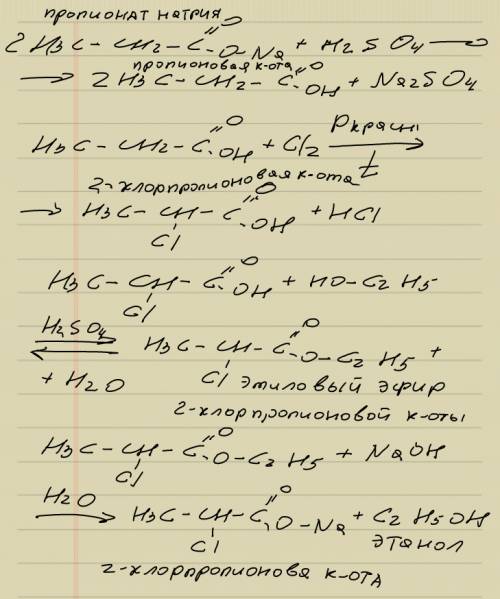 пропионат натрия
2 H3C – CH2 – C(=O) O–Na + H2SO4 →
→ 2 H3C – CH2 – C(=O) OH + Na2SO4
пропионовая к-ота
H3C – CH2 – C(=O) OH + Cl2 →(P красн, t)
2-хлорпропионовая к-ота
→ H3C – CH(Cl) – C(=O) OH + HCl
H3C – CH(Cl) – C(=O) OH + HO – C2H5
H2SO4 ⇄ H3C – CH(Cl) – C(=O) O – C2H5 +
+ H2O этиловый эфир
2-хлорпропионовой к-оты
H3C – CH(Cl) – C(=O) O – C2H5 + NaOH
H2O → H3C – CH(Cl) – C(=O) O – Na + C2H5OH
этанол
2-хлорпропионовая к-ота